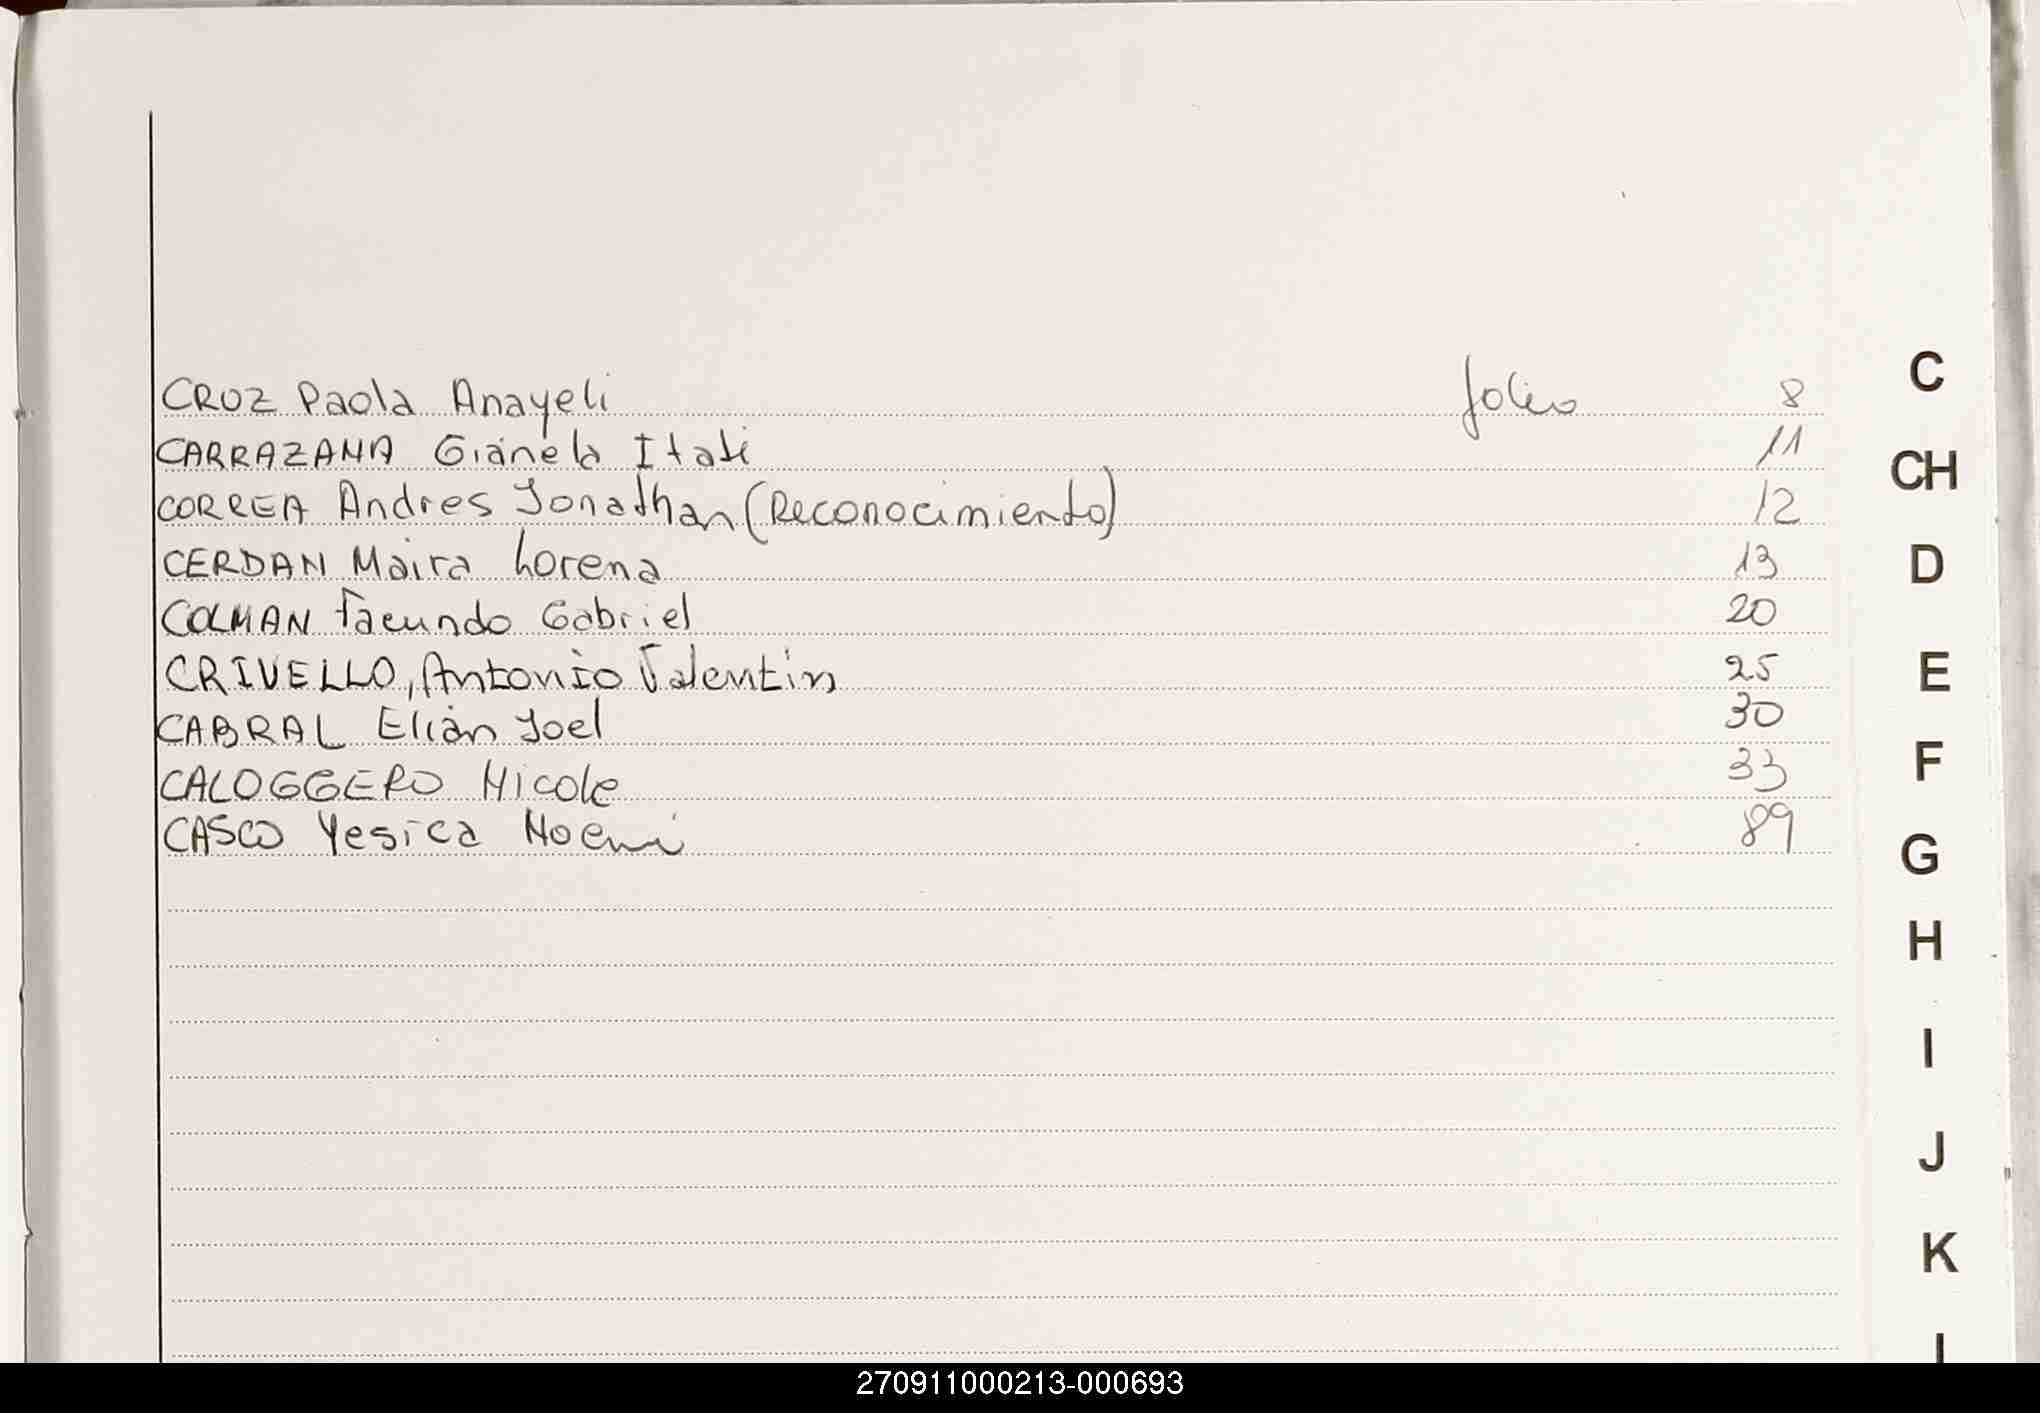 CRUZ Paola Anayeli folio 8
CARRAZANA Gianela Itati 11
CORREA Andres Jonathan (Reconocimiento) 12
CERDAN Maira Lorena 13
COLMAN Facundo Gabriel 20
CRIVELLO, Antonio Valentin 25
CABRAL Elián Joel 30
CALOGGERO Nicole 33
CASCO Yesica Noemi 89
C
CH
D
E
F
G
H
I
J
K
270911000213-000693